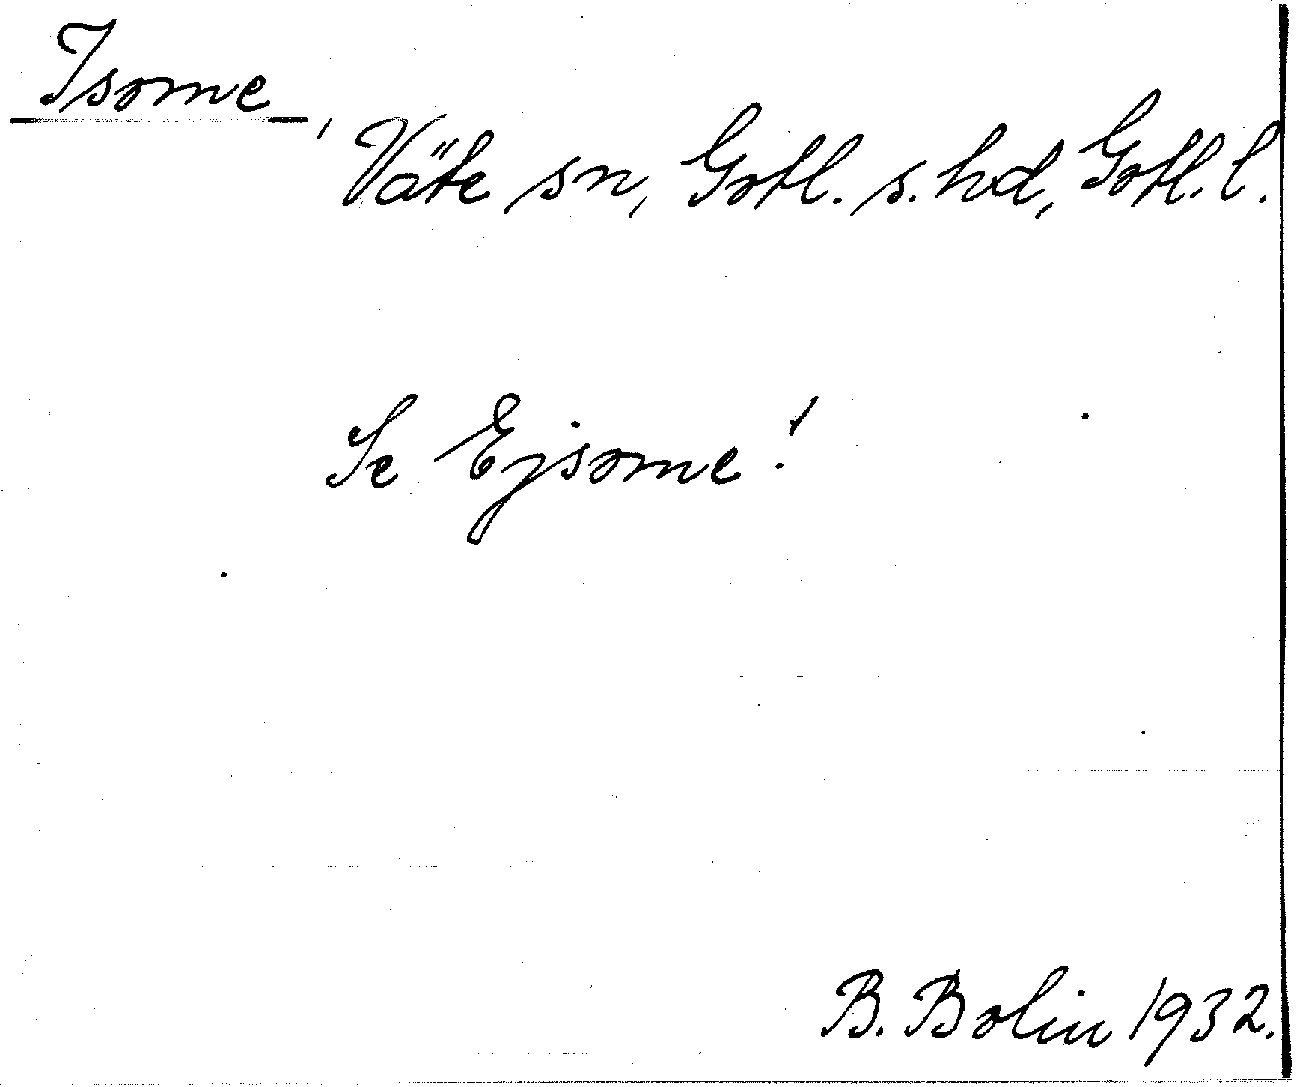 Isome,
Väte sn, Gotl. s. hd, Gotl. l.
Se Ejsome!
B. Bolin 1932.